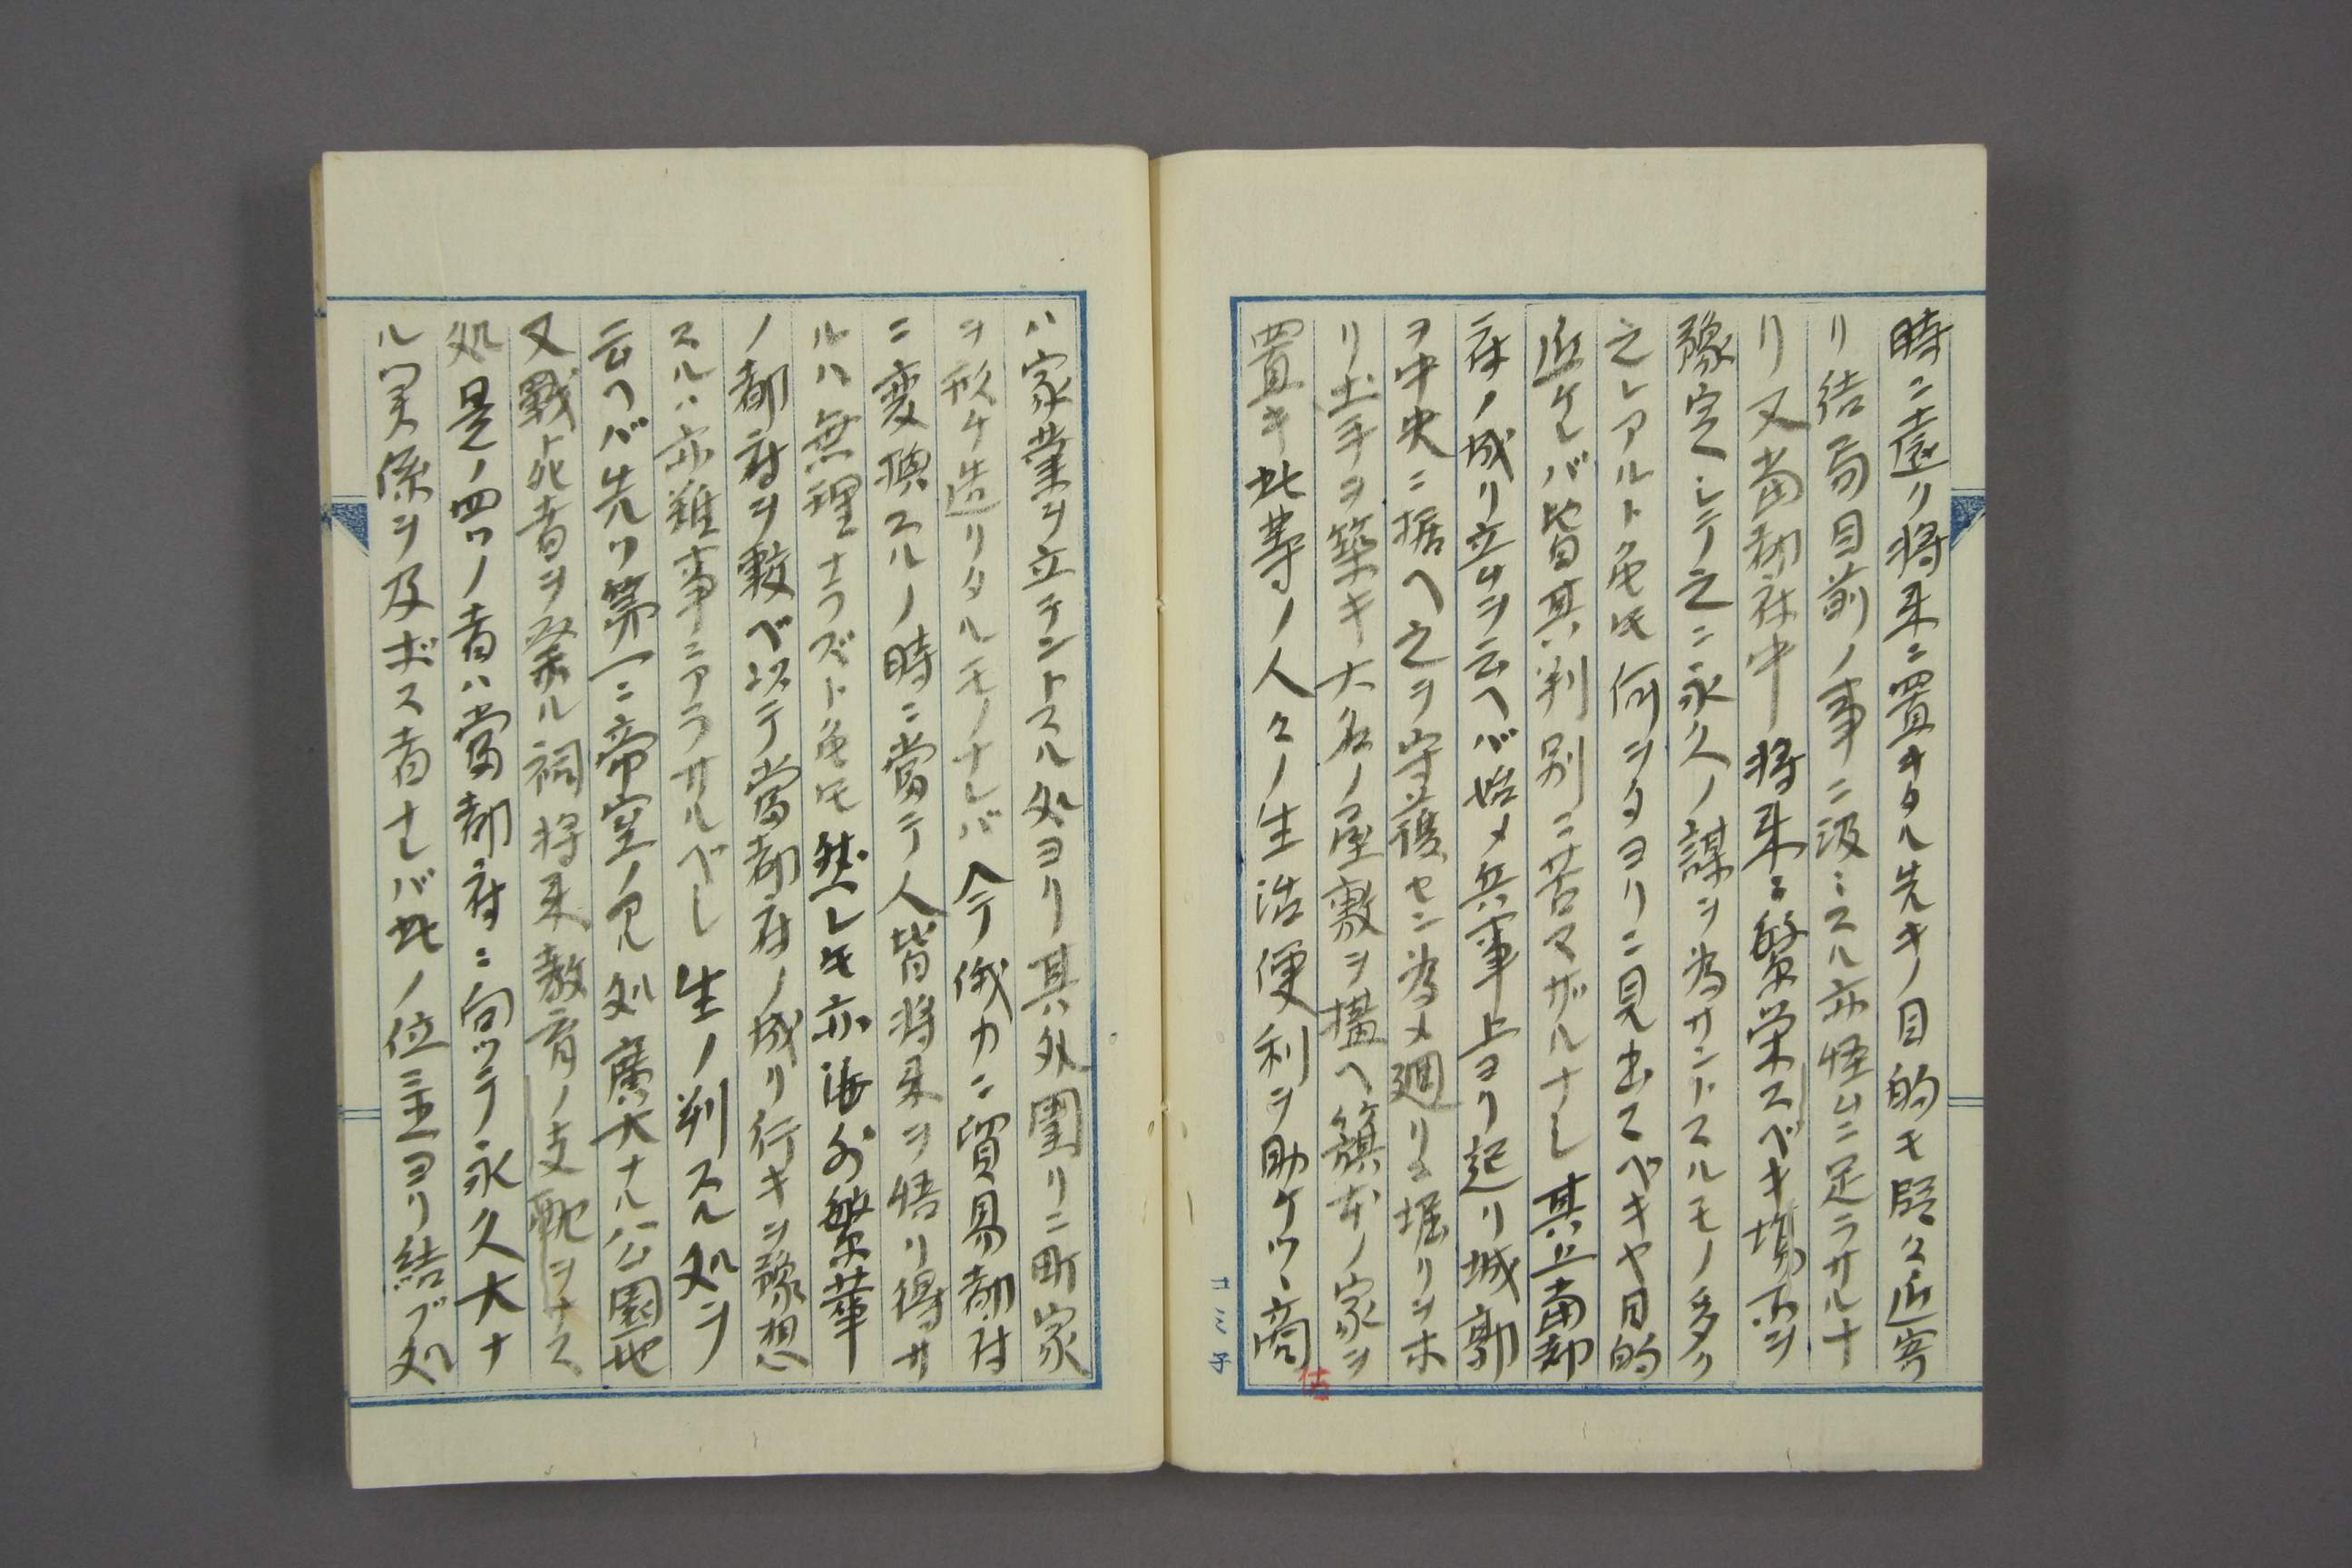 時ニ遠リ将来ニ置キタル先キノ目的モ堅ク近寄
リ結局目前ノ事ニ汲〻スル亦怪ムニ足ラサルナ
リ又当都府中将来ニ繁栄スベキ場所ヲ
豫定シテ之ニ永久ノ謀ヲ為サントスルモノ多ク
之レアルト雖𪜈何ヲタヨリニ見出スベキヤ目的
近ケレバ皆其判別ニ苦マザルナシ其上当都
府ノ成リ立ムヲ云ヘバ始メ兵軍上ヨリ起リ城郭
ヲ中央ニ据ヘ之ヲ守護セン為メ廻リニ堀リヲホ
リ土手ヲ築キ大名ノ屋敷ヲ搆ヘ籏本ノ家ヲ
置キ此等ノ人々ノ生活便利ヲ助ケツヽ商
估
コミ子
ハ家業ヲ立テントスル処ヨリ其外囲リニ町家
ヲ形ケ造リタルモノナレバ今俄カニ貿易都府
ニ変換スルノ時ニ當テ人皆将来ヲ悟リ得サ
ルハ無理ナラズト雖𪜈然レ𪜈亦海外繁華
ノ都府ヲ数ベ以テ當都府ノ成リ行キヲ豫想
スルハ亦難事ニアラサルベシ生ノ判スル処ヲ
云ヘバ先ツ第一ニ帝室ノアル処廣大ナル公園地
又戰死者ヲ祭ル祠将来教育ノ支配ヲナス
処是ノ四ツノ者ハ當都府ニ向ッテ永久大ナ
ル関係ヲ及ボス者ナレバ此ノ位主ヨリ結ブ処